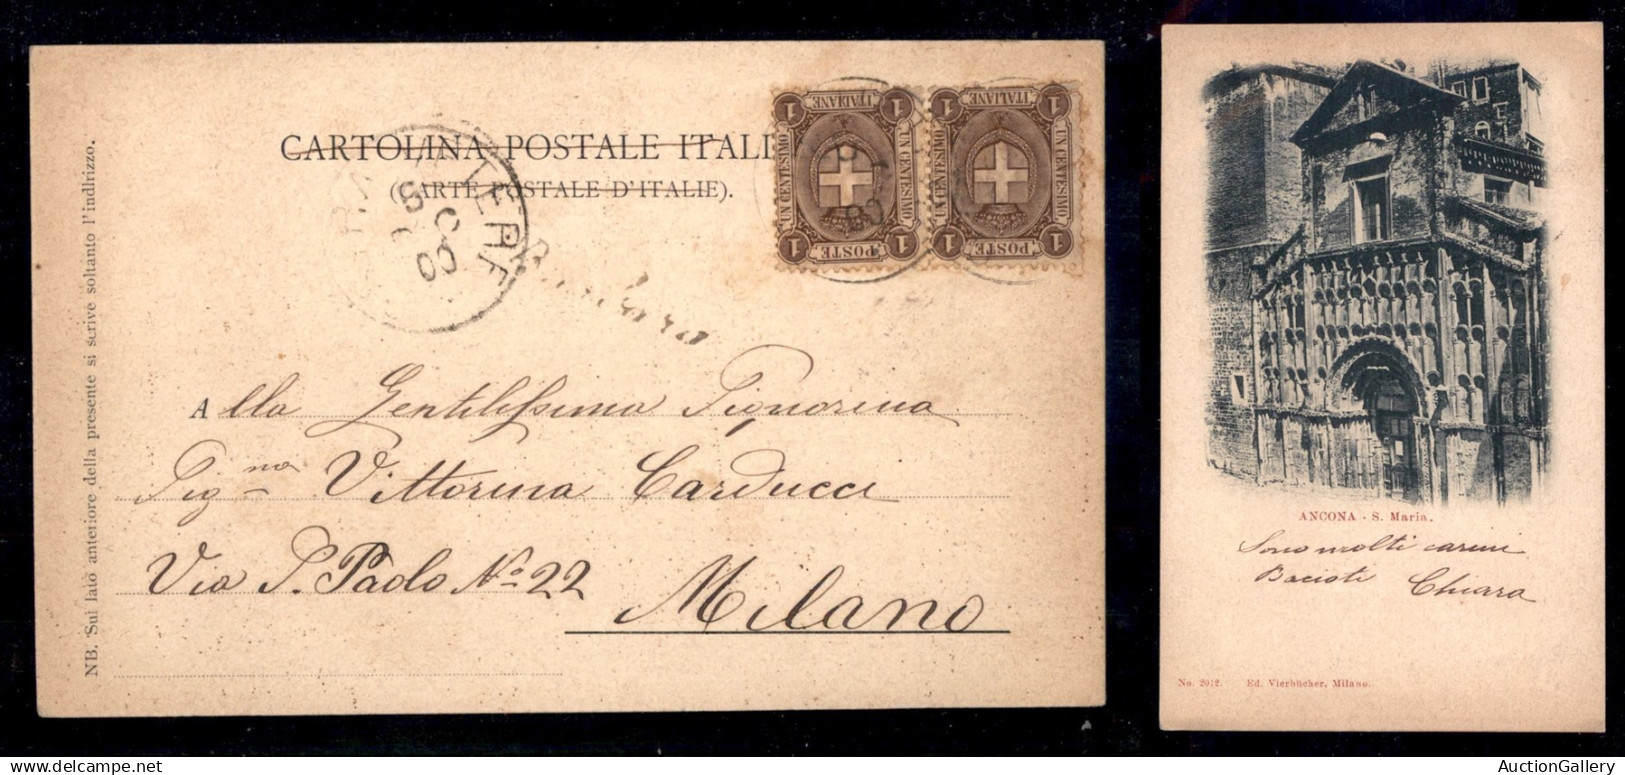 CARTOLINA POSTALE ITALI
(CARTE POSTALE D'ITALIE).
1 ITALIANE 1
UN CENTESIMO UN CENTESIMO
1 POSTE 1
1 ITALIANE 1
UN CENTESIMO UN CENTESIMO
1 POSTE 1
00
NB. Sul lato anteriore della presente si scrive soltanto l'indirizzo.
Alla Gentilissima Signorina
Sig.na Vittorina Carducci
Via S. Paolo No 22
Milano
ANCONA - S. Maria.
Sono molti carini
Bacioti Chiara
No. 2012. Ed. Vierbücher, Milano.
AuctionGallery